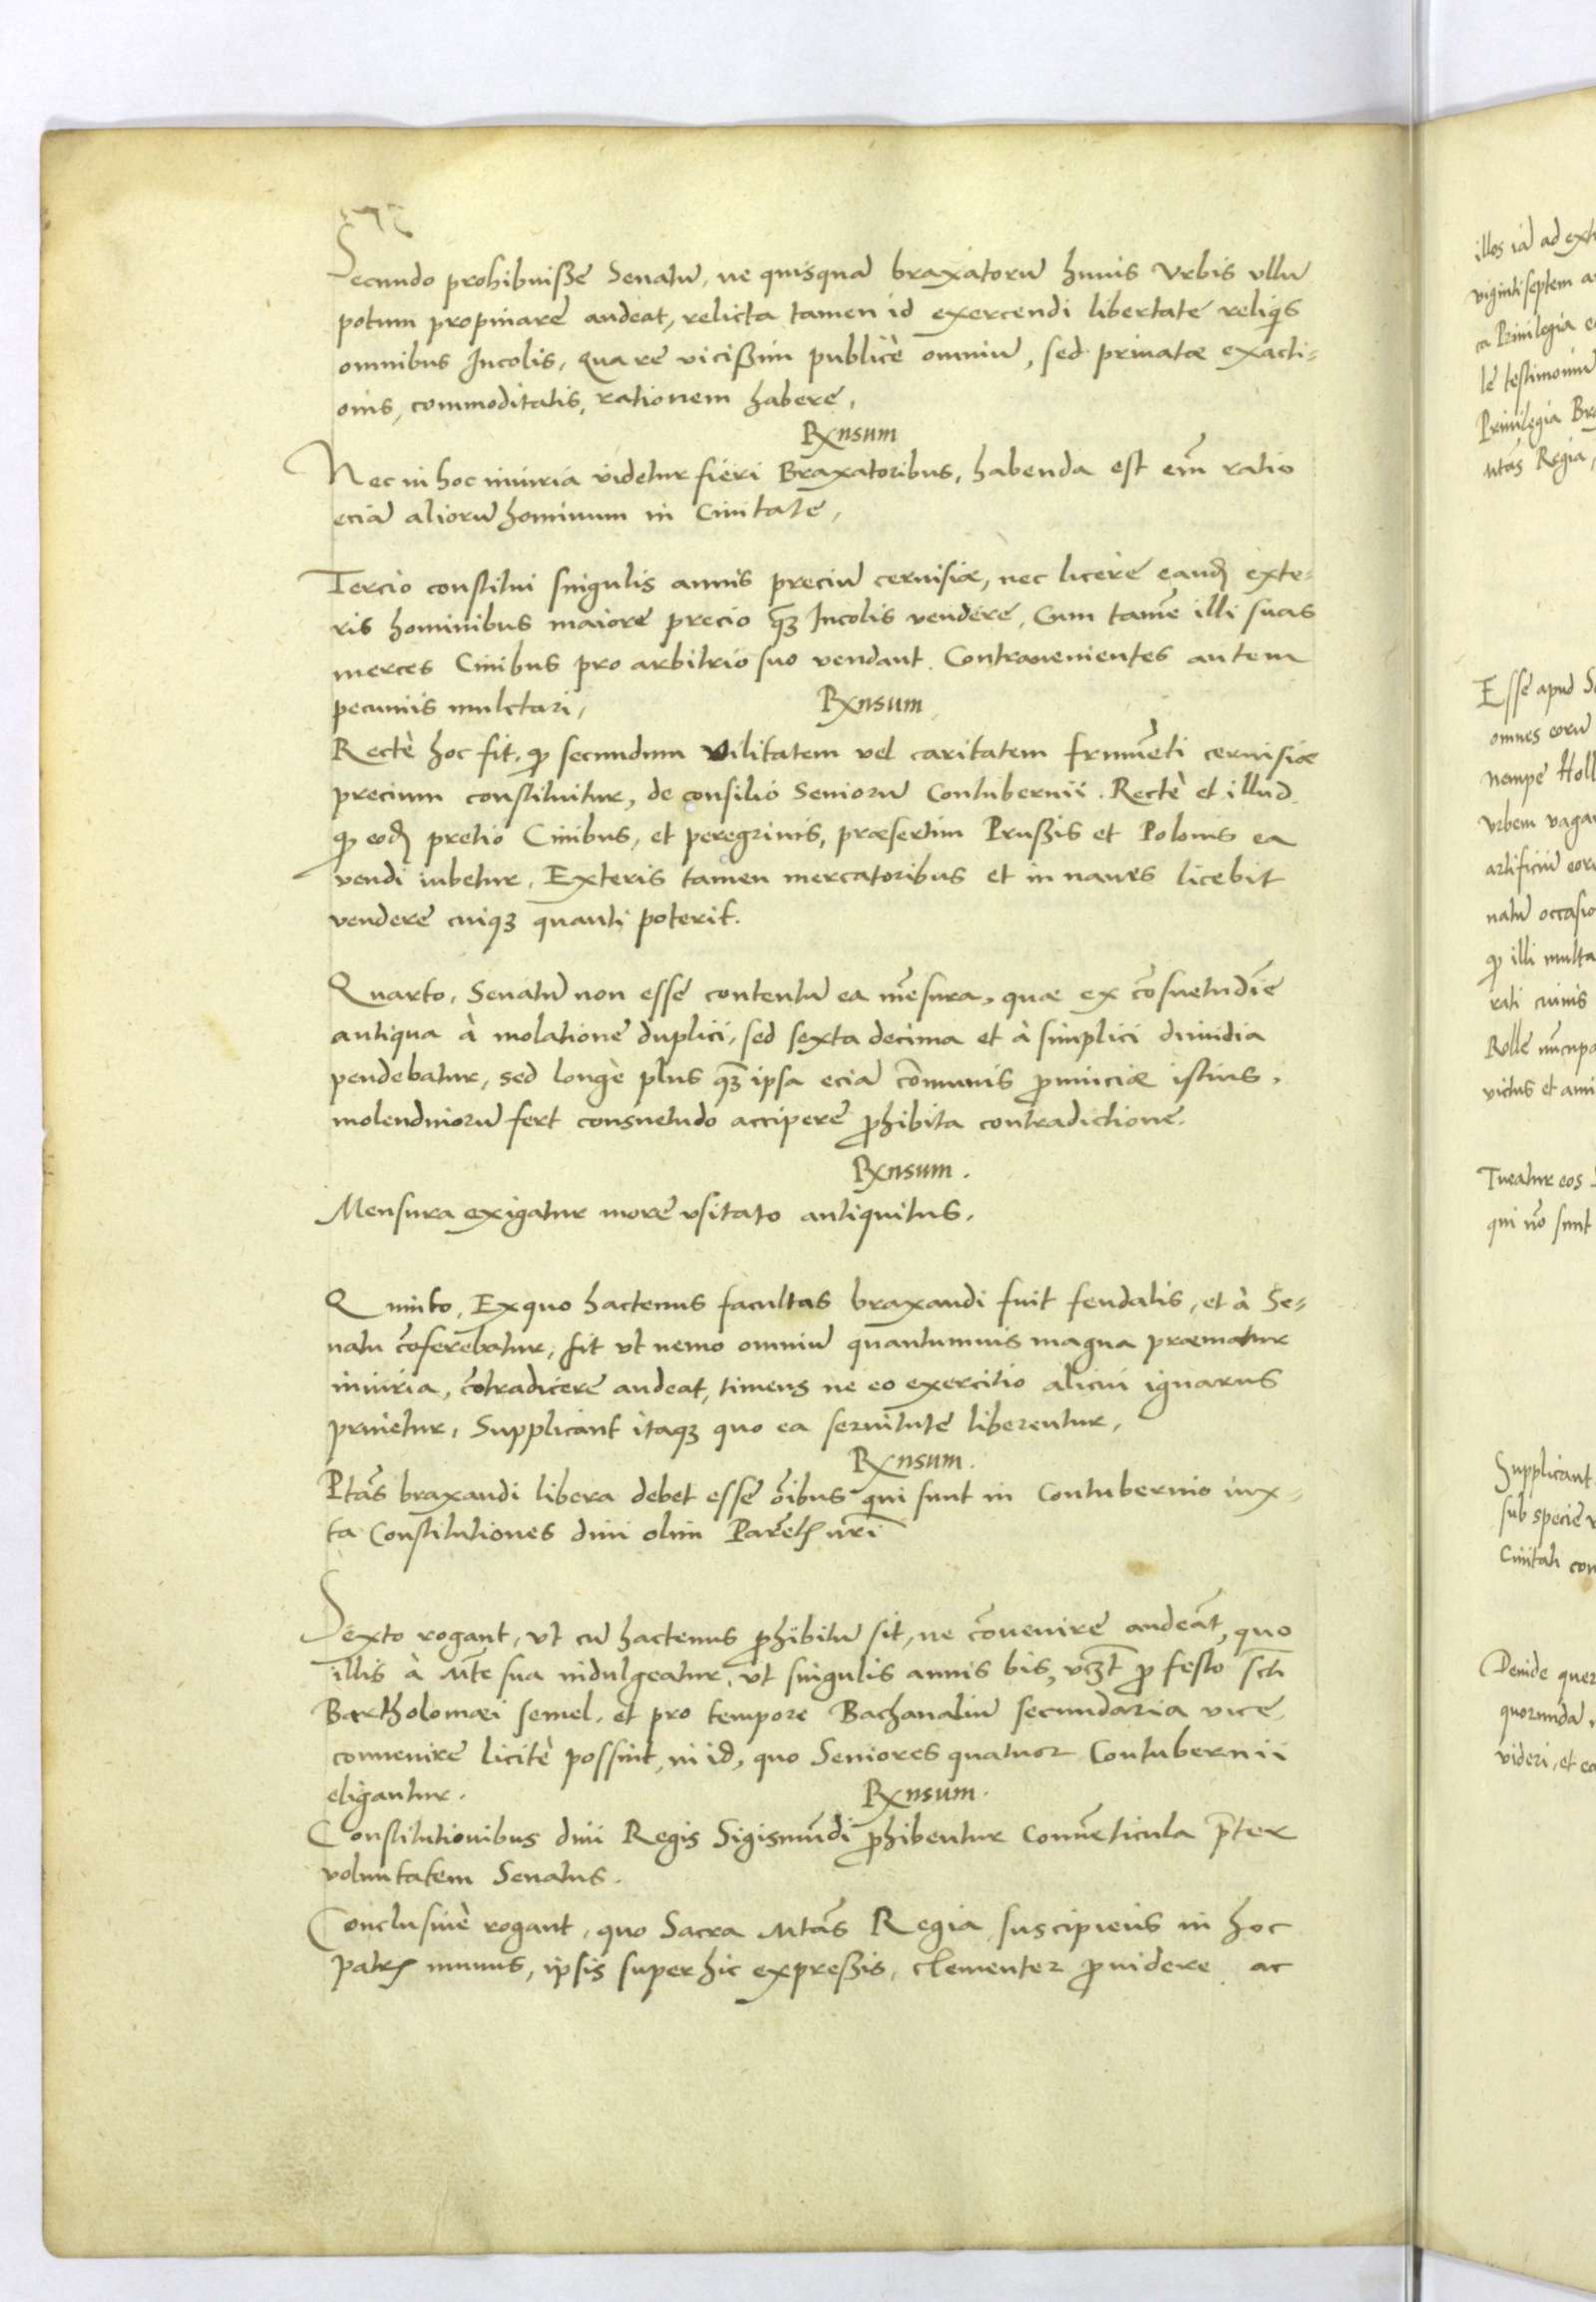 Secundo prohibuisse Senatũ, ne quisquã braxatorũ huius Vrbis vllũ
potum propinare audeat, relicta tamen id exercendi libertate reliqis
omnibus Incolis, Qua re vicissim publicè omniũ, sed priuatæ exacti=
onis, commoditatis, rationem habere,
Rxnsum
Nec in hoc iniuria videtur fieri Braxatoribus, habenda est em̃ ratio
eciã aliorũ hominum in Ciuitate,
Tercio constitui singulis annis preciũ ceruisiæ, nec licere eandꝭ exte=
ris hominibus maiore precio q̃ꝫ Incolis vendere, Cum tamẽ illi suas
merces Ciuibus pro arbitrio suo vendant. Contrauenientes autem
pecunijs mulctari,
Rxnsum
Rectè hoc fit, ꝙ secundum vilitatem vel caritatem frumẽti ceruisiæ
precium constituitur, de consilio Seniorũ Contubernii. Rectè et illud
ꝙ eodꝭ pretio Ciuibus, et peregrinis, præsertim Prussis et Polonis ea
vendi iubetur, Exteris tamen mercatoribus et in naues licebit
vendere cuiqꝫ quanti poterit.
Quarto, Senatũ non esse contentũ ea mẽsura, quæ ex cõsuetudĩe
antiqua à molatione duplici, sed sexta decima et à simplici dimidia
pendebatur, sed longè plus q̃ꝫ ipsa eciã cõmunis ꝓuinciæ istius,
molendinorũ fert consuetudo accipere ꝓhibita contradictione.
Rxnsum.
Mensura exigatur more vsitato antiquitus.
Quinto, Exquo hactenus facultas braxandi fuit feudalis, et à Se=
natu cõferebatur, fit vt nemo omniũ quantumuis magna præmatur
iniuria, cõtradicere audeat, timens ne eo exercitio alicui ignarus
priuetur, Supplicant itaqꝫ quo ea seruitute liberentur,
Rxnsum.
Ptãs braxandi libera debet esse õibus qui sunt in Contubernio iux=
ta Constitutiones diui olim Parẽtꝭ nr̃i
Sexto rogant, vt cũ hactenus ꝓhibitũ sit, ne cõuenire audeãt, quo
illis à Mt̃e sua indulgeatur, vt singulis annis bis, vꝫt̃ ꝓ festo sct̃i
Bartholomæi semel, et pro tempore Bachanaliũ secundaria vice
conuenire licitè possint, in id, quo Seniores quatuor Contubernii
eligantur.
Rxnsum.
Constitutionibus diui Regis Sigismũdi ꝓhibentur Conuẽticula p̃ter
voluntatem Senatus.
Conclusiuè rogant, quo Sacra Mtãs Regia suscipiens in hoc
patrꝭ munus, ipsis super hic expressis, clementer ꝓuidere ac
illos iã ad ext
viginti septem a
ca Priuilegia e
le testimoniũ
Priuilegia Bra
ntãs Regia,
Esse apud S
omnes eorũ
nempe Holl
Vrbem vaga
artificiũ eorũ
natũ occasio
ꝙ illi multa
rati ciuis
Rolle nũcupa
victus et ami
Tueatur eos
qui nõ sunt
Supplicant
sub specie
Ciuitati con
Deinde quer
quorundã
videri, et ea